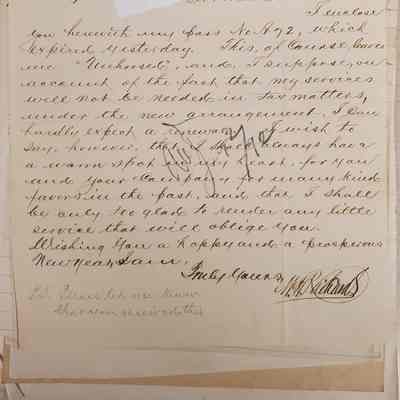 I enclose
you herewith my pass No. A 92, which
expired yesterday. This, of course, leaves
me "Unhorsed", and, I suppose, on
account of the fact that my services
will not be needed in tax matters,
under the new arrangement, I can
hardly expect a renewal. I wish to
say, however, that I shall always have
a warm spot in my heart, for you
and your Company for many kind
favors in the past, and that I shall
be only too glad to render any little
service that will oblige you.
Wishing you a happy and a prosperous
New Year, I am,
Truly Yours,